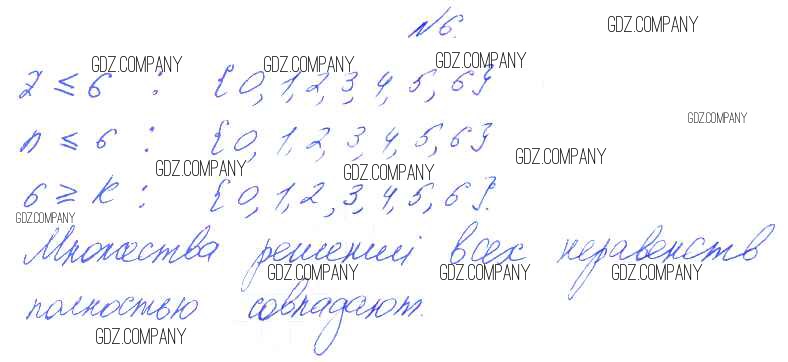 №6.
GDZ.COMPANY
GDZ.COMPANY GDZ.COMPANY GDZ.COMPANY
z ≤ 6 : {0, 1, 2, 3, 4, 5, 6}
GDZ.COMPANY
n ≤ 6 : {0, 1, 2, 3, 4, 5, 6}
GDZ.COMPANY GDZ.COMPANY GDZ.COMPANY
6 ≥ k : {0, 1, 2, 3, 4, 5, 6}.
GDZ.COMPANY
Множества решений всех неравенств
GDZ.COMPANY GDZ.COMPANY GDZ.COMPANY
полностью совпадают.
GDZ.COMPANY